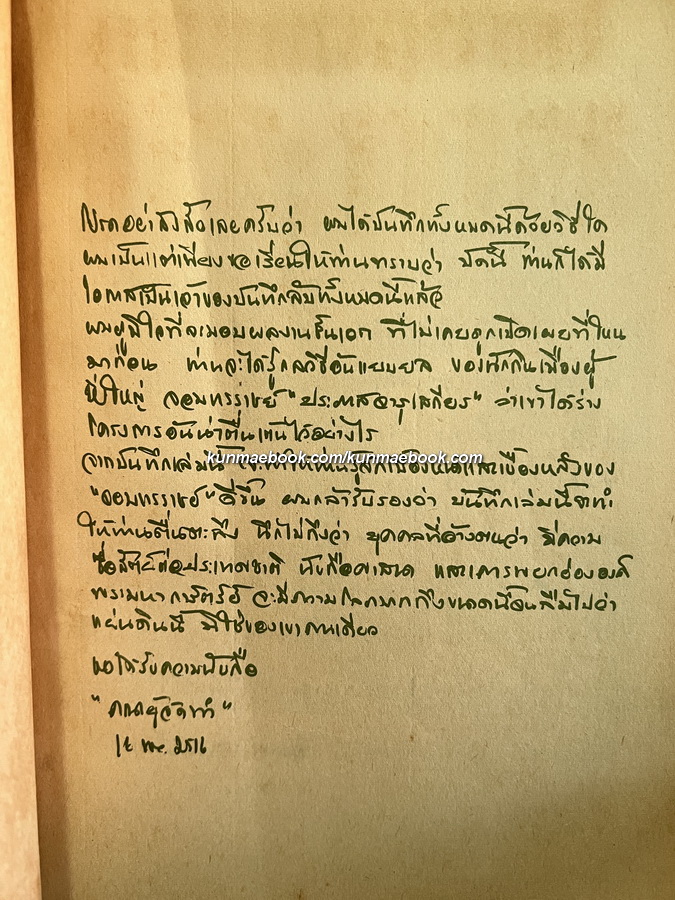 โปรดอย่าสงสัยเลยครับว่า ผมได้บันทึกทั้งหมดนี้ด้วยวิธีใด
ผมเป็นแต่เพียงขอเรียนให้ท่านทราบว่า บัดนี้ ท่านก็ได้มี
โอกาสเป็นเจ้าของบันทึกลับทั้งหมดนี้แล้ว
ผมภูมิใจที่จะมอบผลงานชิ้นเอก ที่ไม่เคยถูกเปิดเผยที่ไหน
มาก่อน ท่านจะได้รู้กลวิธีอันแยบยล ของนักกินเมืองผู้
ยิ่งใหญ่ จอมทรราชย์ "ประภาสจารุเสถียร" ว่าเขาได้ร่าง
โครงการอันน่าตื่นเต้นไว้อย่างไร
จากบันทึกเล่มนี้ จะทำให้ท่านรู้สึกเบื้องหน้าและเบื้องหลังของ
kunmaebook.com/kunmaebook.com
"จอมทรราชย์" ดีขึ้น ผมกล้ารับรองว่า บันทึกเล่มนี้จะทำ
ให้ท่านตื่นตะลึง นึกไม่ถึงว่า บุคคลที่อ้างตนว่า มีความ
ซื่อสัตย์ต่อประเทศชาติ นับถือศาสนา และเคารพยกย่ององค์
พระมหากษัตริย์ จะมีความโลภมากถึงขนาดนี้จนลืมไปว่า
แผ่นดินนี้ มิใช่ของเขาคนเดียว
ขอได้รับความนับถือ
"คณะผู้จัดทำ"
พย. 2516